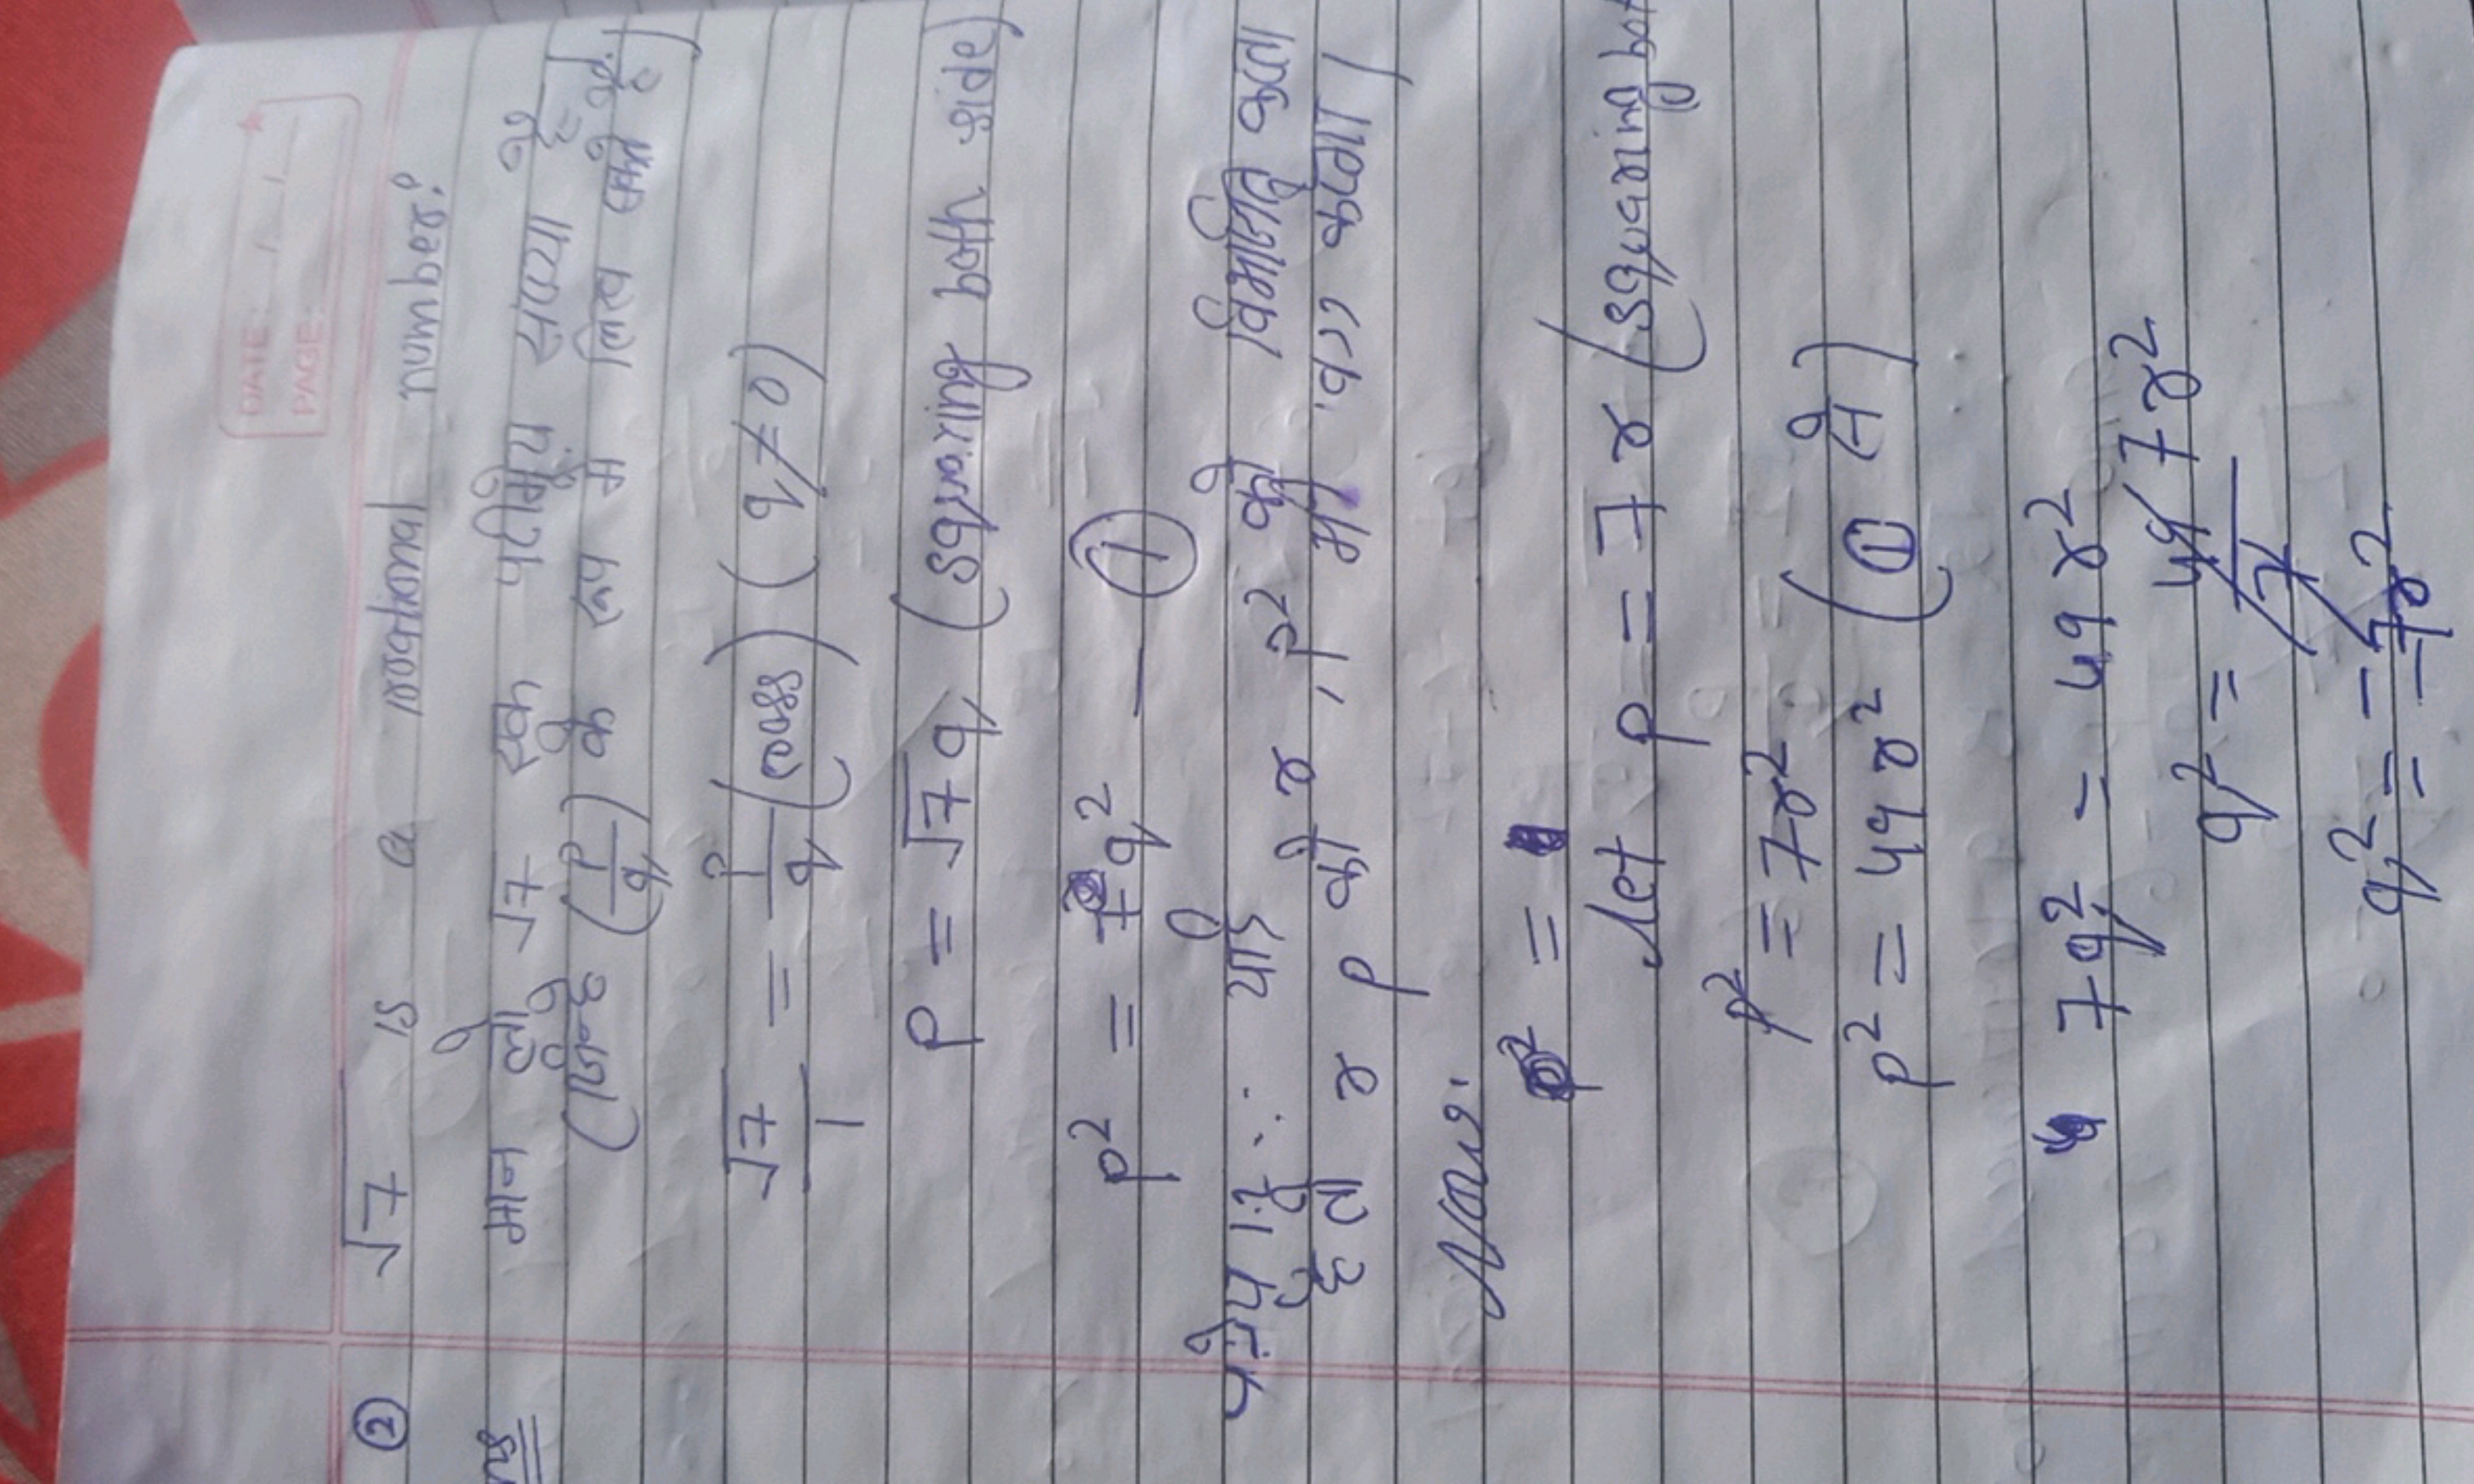 DATE: / /
PAGE:
② √7 is a rational number?
मान लो √7 एक परीमेय संख्या है।
(जिन्हे (p/q) के रूप में लिख सकते है)
√7/1 = p/q (cross) (q ≠ 0)
p = √7 q (squaring both side)
p² = 7q² — ①
प्रमेय 1: ∵ यदि r, p² को विभाजित करता
है तो r p को भी वश करेगा।
Now.
p² =
Let p = 7r (squaring bot
p² = 7r²
p² = 49r² (① से)
7q² = 49r²
q² = 49/7 7r²
q² = 7r²